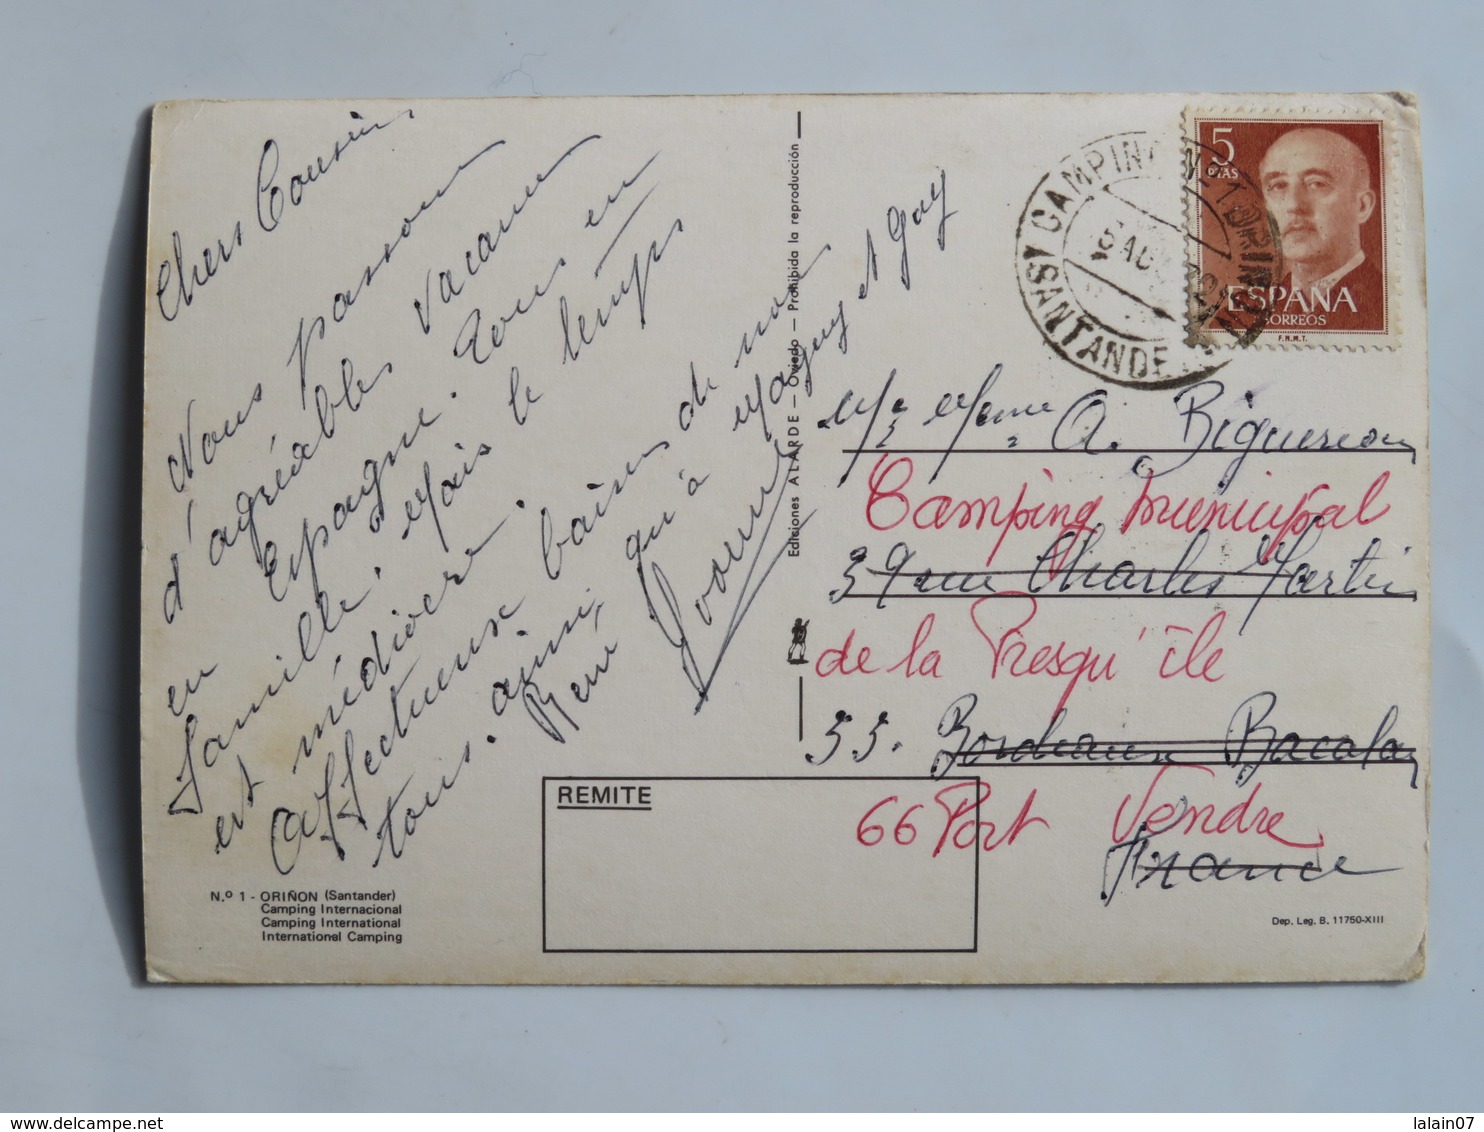 Chers Cousins
Nous passons
d'agréables vacances
en Espagne. Tous en
famille. Mais le temps
est médiocre.
Affectueux baisers de nous
tous. ainsi qu'à Maguy et Guy
René Yvonne
N.º 1 - ORIÑON (Santander)
Camping Internacional
Camping International
International Camping
REMITE
Ediciones ALARDE - Oviedo - Prohibida la reproducción
5
PTAS
ESPAÑA
CORREOS
F.N.M.T.
CAMPING Nº 1 ORIÑON
5 AGO
(SANTANDER)
Mr Mme A.
Camping Municipal
39 rue Charles Martin
de la Presqu'île
33. Bordeaux Bacalan
66 Port Vendre
France
Dep. Leg. B. 11750-XIII
delcampe.net
lalain07